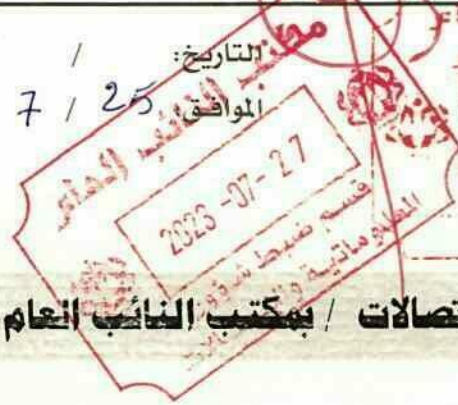 التاريخ: /
الموافق: 25 / 7
مكتب النائب العام
2023 -07- 27
قسم ضبط شؤون
المعلوماتية
تصالات / بمكتب النائب العام